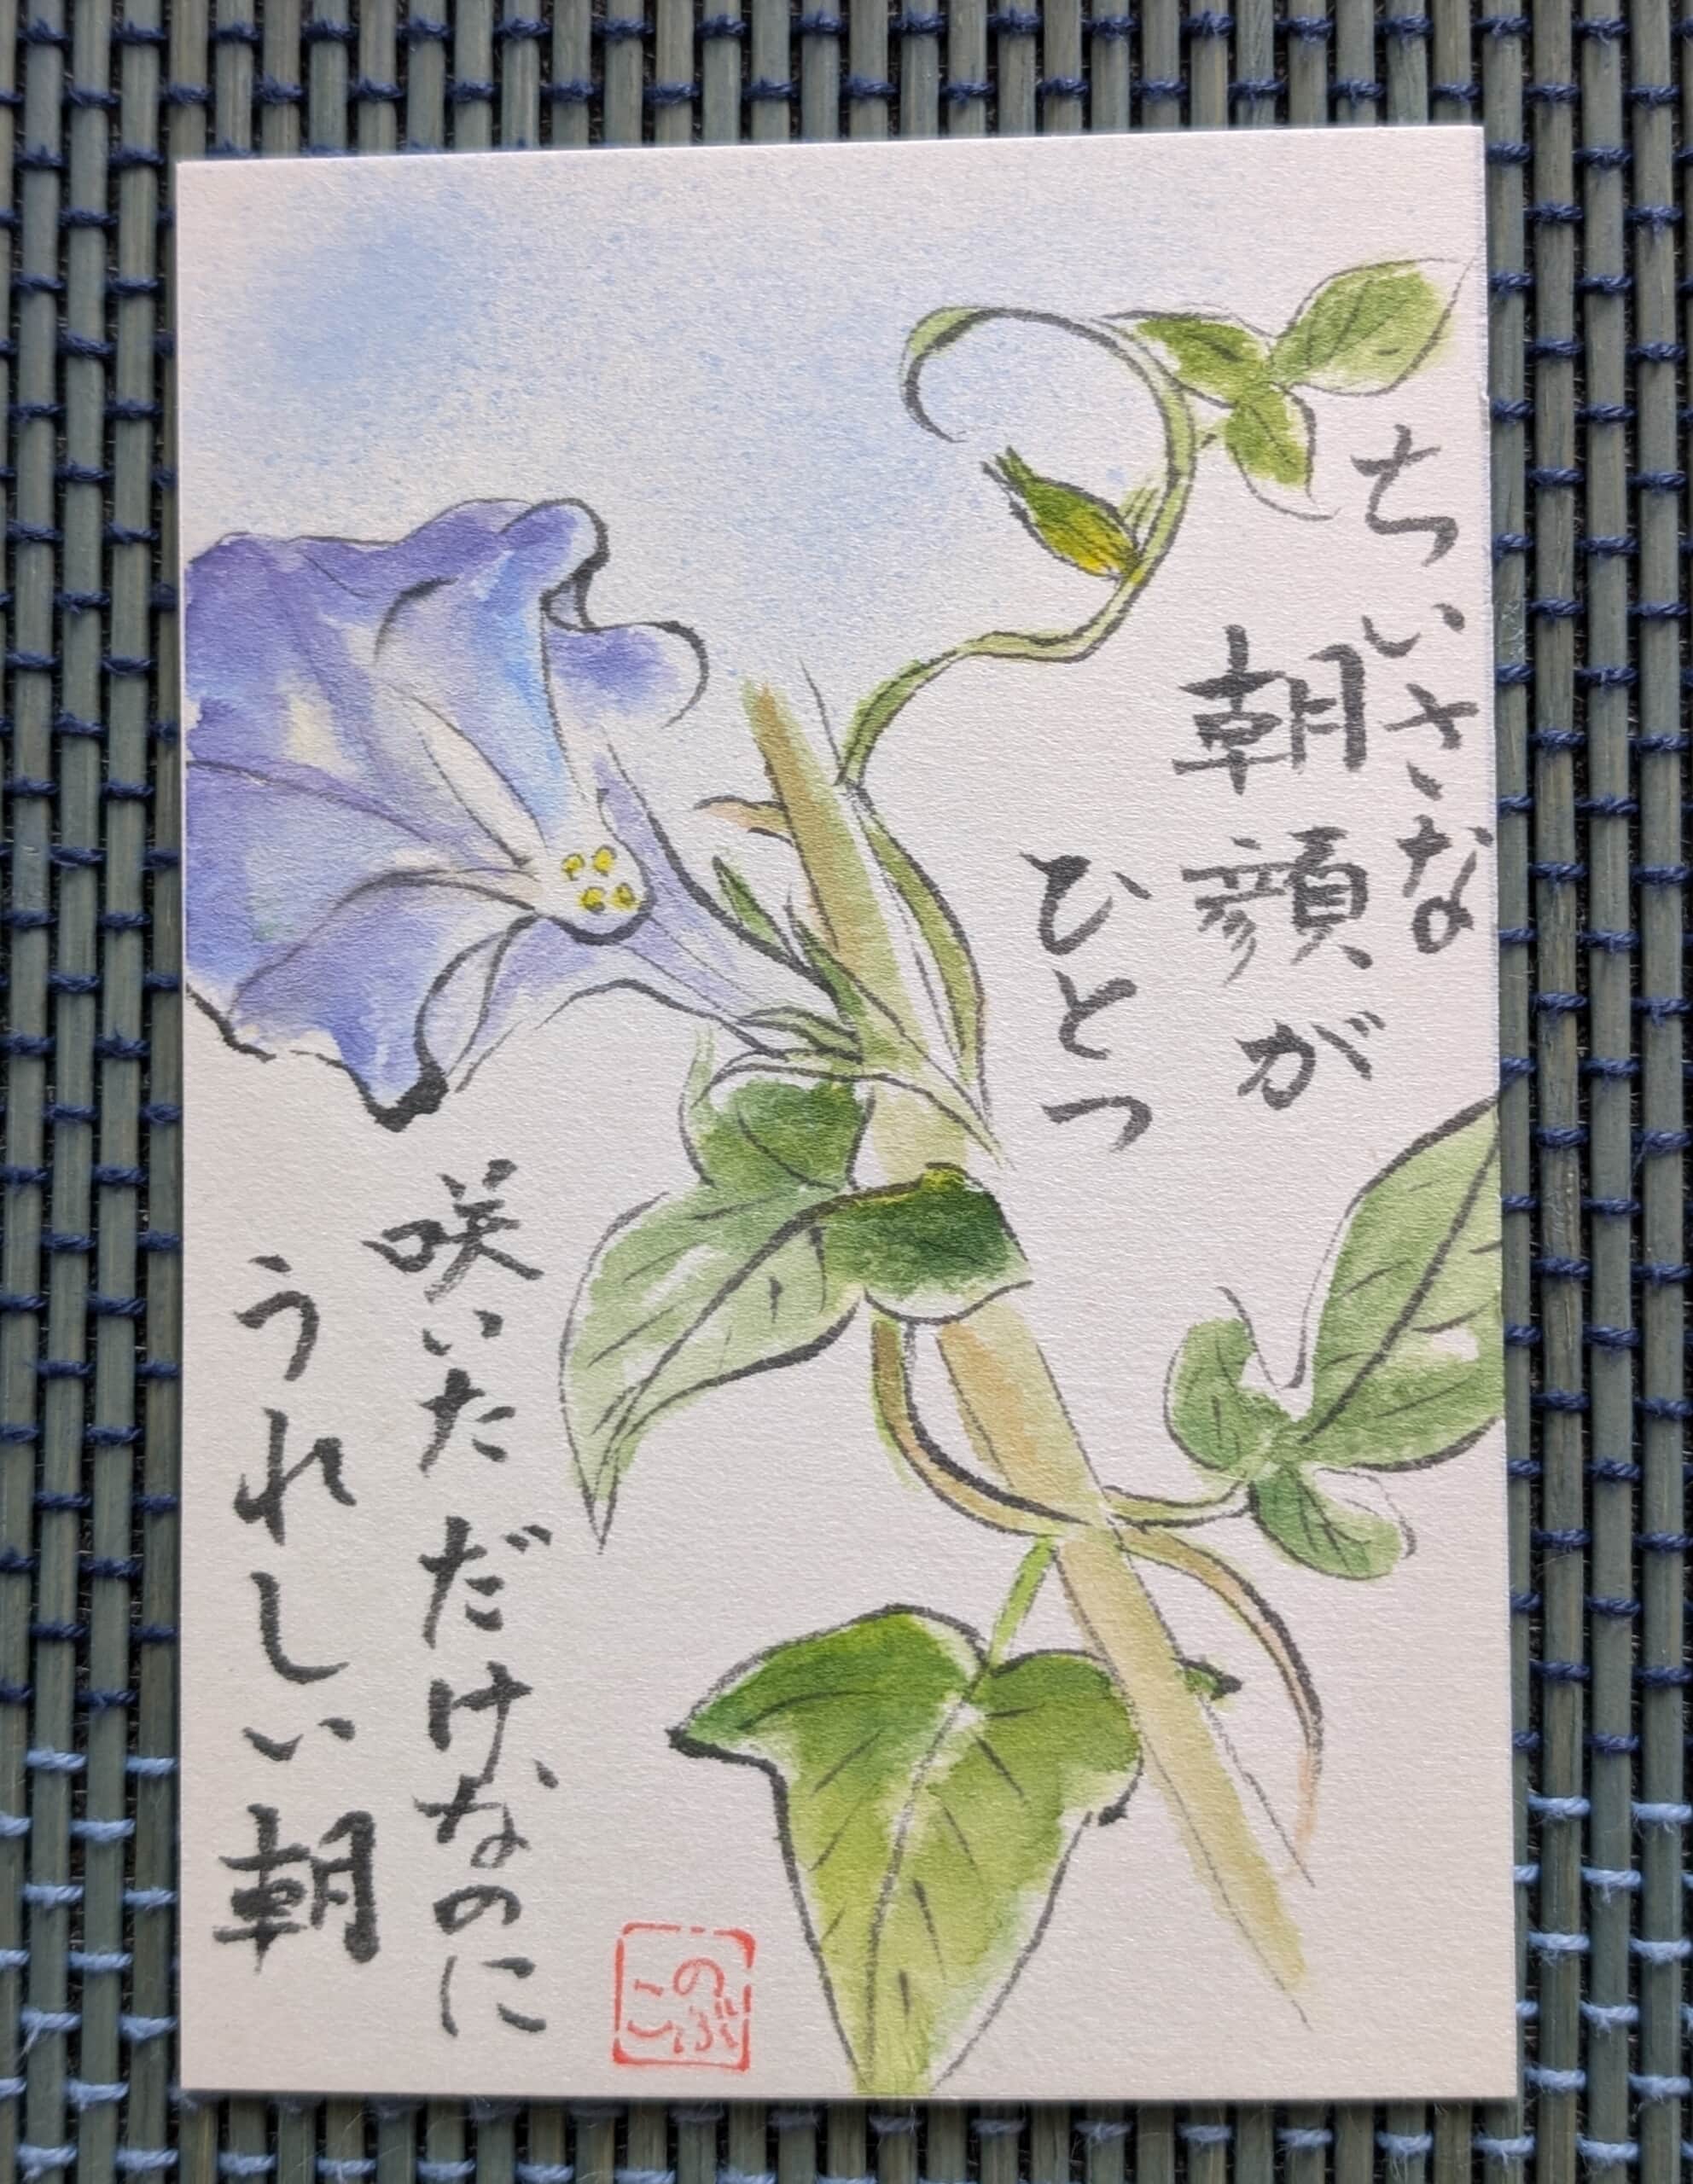 ちいさな
朝顔が
ひとつ
咲いた だけ、なのに
うれしい朝
のぶ
こ